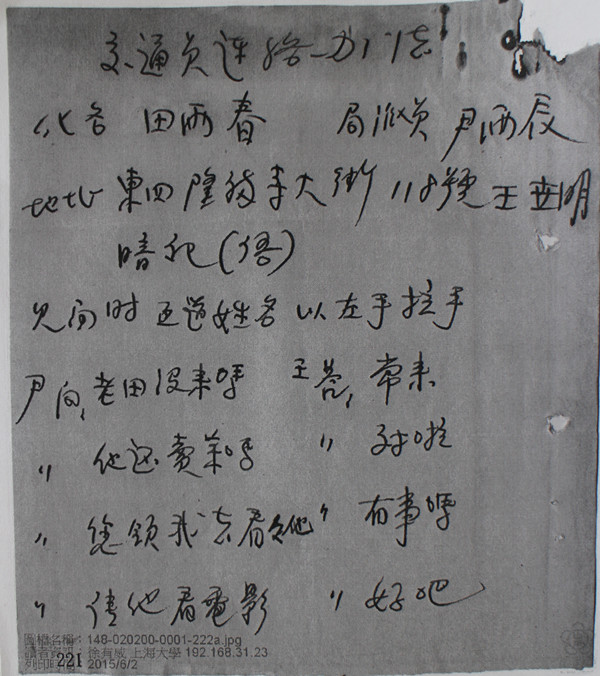 交通员连络办法
化名 田雨春 局派员 尹雨辰
地址 東四隆福寺大街 118號 王世明
暗记(语)
见面时 互道姓名 以左手拉手
尹问,老田没来吗 王答,常来
〃 他还卖菜吗 〃 对啦
〃 您领我去看看他 〃 有事吗
〃 请他看電影 〃 好吧
圖檔名稱:148-020200-0001-222a.jpg
讀者資訊:徐有威 上海大學 192.168.31.23
列印時 2015/6/2
221